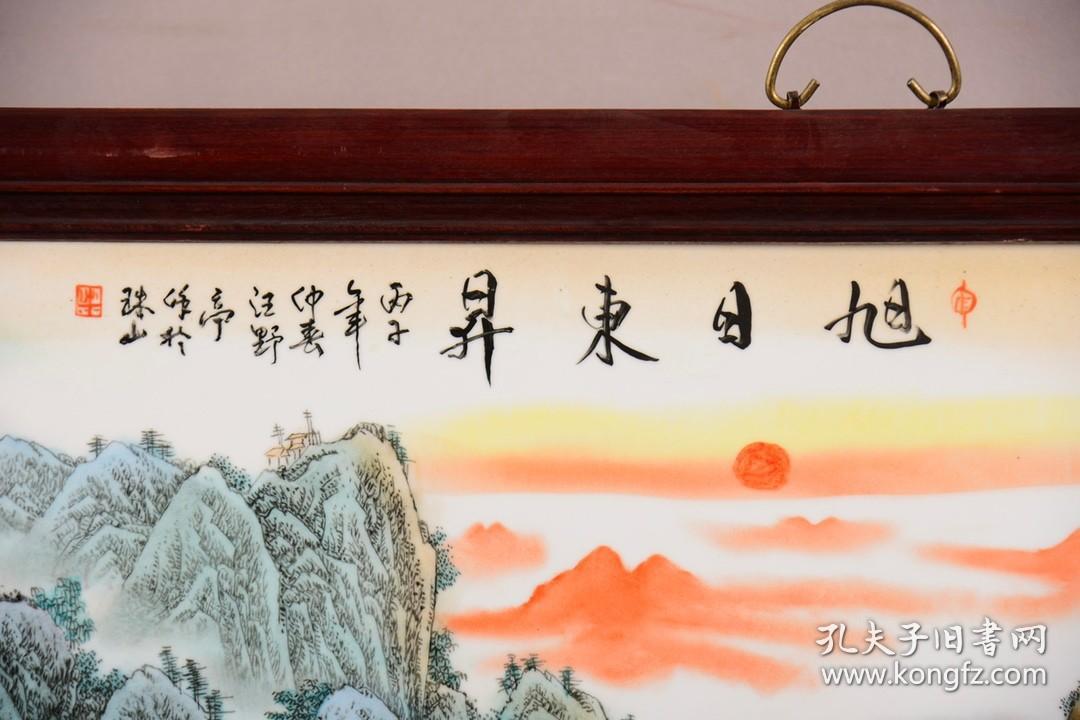 旭日東昇
丙子
年
仲春
汪野
亭
作於
珠山
孔夫子旧書网
www.kongfz.com